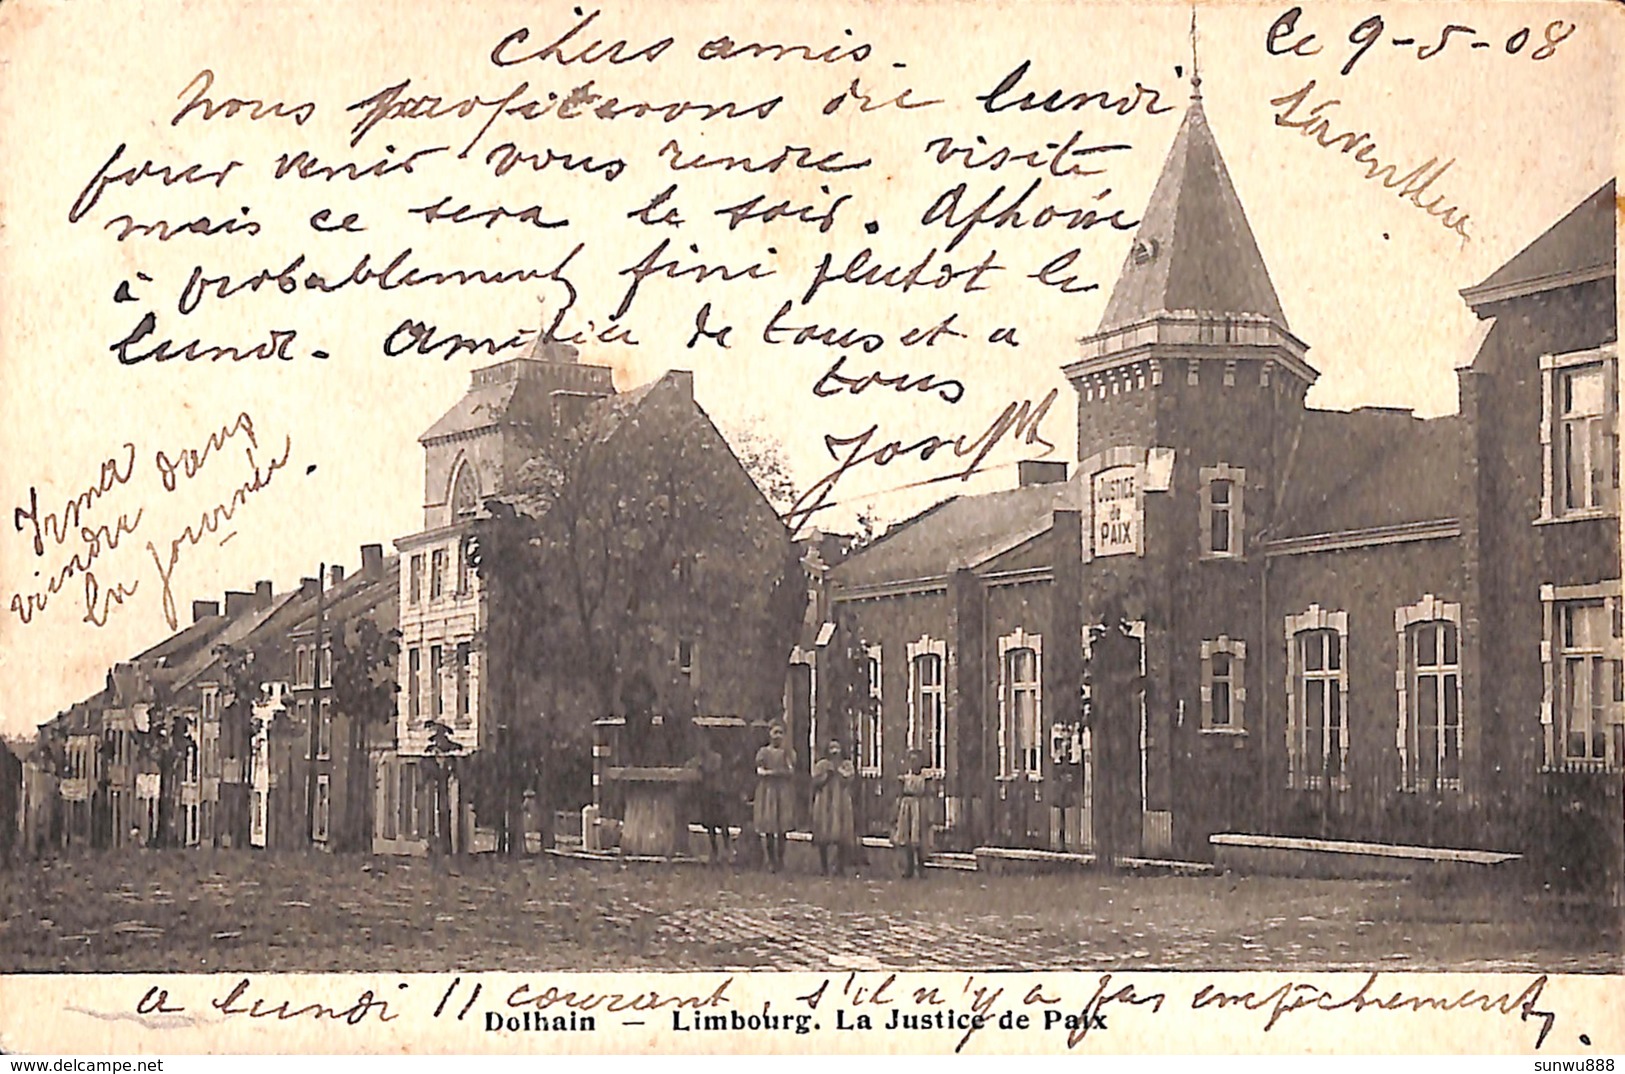 Ce 9-5-08
Chers amis.
Nous profiterons de lundi
pour venir vous rendre visite
mais ce sera le soir. Alphonse
a probablement fini plutot le
lundi. Amitiés de tous et a
tous
Joseph
Irma
viendra dans
la journée.
JUSTICE
de
PAIX
a lundi 11 courant, s'il n'y a pas empêchement.
Dolhain — Limbourg. La Justice de Paix
sunwu888